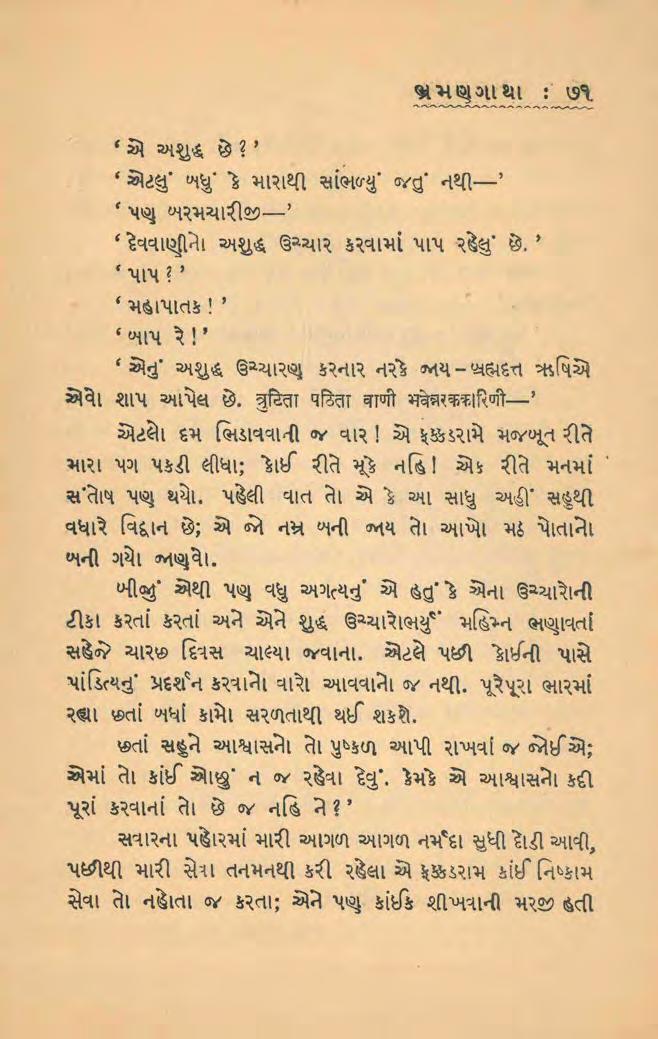 ભ્રમણગાથા : ૭૧
‘ એ અશુદ્ધ છે ? ’
‘ એટલું બધું કે મારાથી સાંભળ્યું જતું નથી—’
‘ પણ બરમચારીજી—’
‘ દેવવાણીનો અશુદ્ધ ઉચ્ચાર કરવામાં પાપ રહેલું છે. ’
‘ પાપ ? ’
‘ મહાપાતક ! ’
‘ બાપ રે ! ’
‘ એનું અશુદ્ધ ઉચ્ચારણ કરનાર નરકે જાય – બ્રહ્મદત્ત ઋષિએ
એવો શાપ આપેલ છે. त्रुटिता पठिता वाणी भवेन्नरककारिणी—’
એટલો દમ ભિડાવવાની જ વાર ! એ ફક્કડરામે મજબૂત રીતે
મારા પગ પકડી લીધા; કોઈ રીતે મૂકે નહિ ! એક રીતે મનમાં
સંતોષ પણ થયો. પહેલી વાત તો એ કે આ સાધુ અહીં સહુથી
વધારે વિદ્વાન છે; એ જો નમ્ર બની જાય તો આખો મઠ પોતાનો
બની ગયો જાણવો.
બીજું એથી પણ વધુ અગત્યનું એ હતું કે એના ઉચ્ચારોની
ટીકા કરતાં કરતાં અને એને શુદ્ધ ઉચ્ચારોભર્યું મહિમ્ન ભણાવતાં
સહેજે ચારછ દિવસ ચાલ્યા જવાના. એટલે પછી કોઈની પાસે
પાંડિત્યનું પ્રદર્શન કરવાનો વારો આવવાનો જ નથી. પૂરેપૂરા ભારમાં
રહ્યા છતાં બધાં કામો સરળતાથી થઈ શકશે.
છતાં સહુને આશ્વાસનો તો પુષ્કળ આપી રાખવાં જ જોઈએ;
એમાં તો કાંઈ ઓછું ન જ રહેવા દેવું. કેમકે એ આશ્વાસનો કદી
પૂરાં કરવાનાં તો છે જ નહિ ને ? ’
સવારના પહોરમાં મારી આગળ આગળ નર્મદા સુધી દોડી આવી,
પછીથી મારી સેવા તનમનથી કરી રહેલા એ ફક્કડરામ કાંઈ નિષ્કામ
સેવા તો નહોતા જ કરતા; એને પણ કાંઈક શીખવાની મરજી હતી